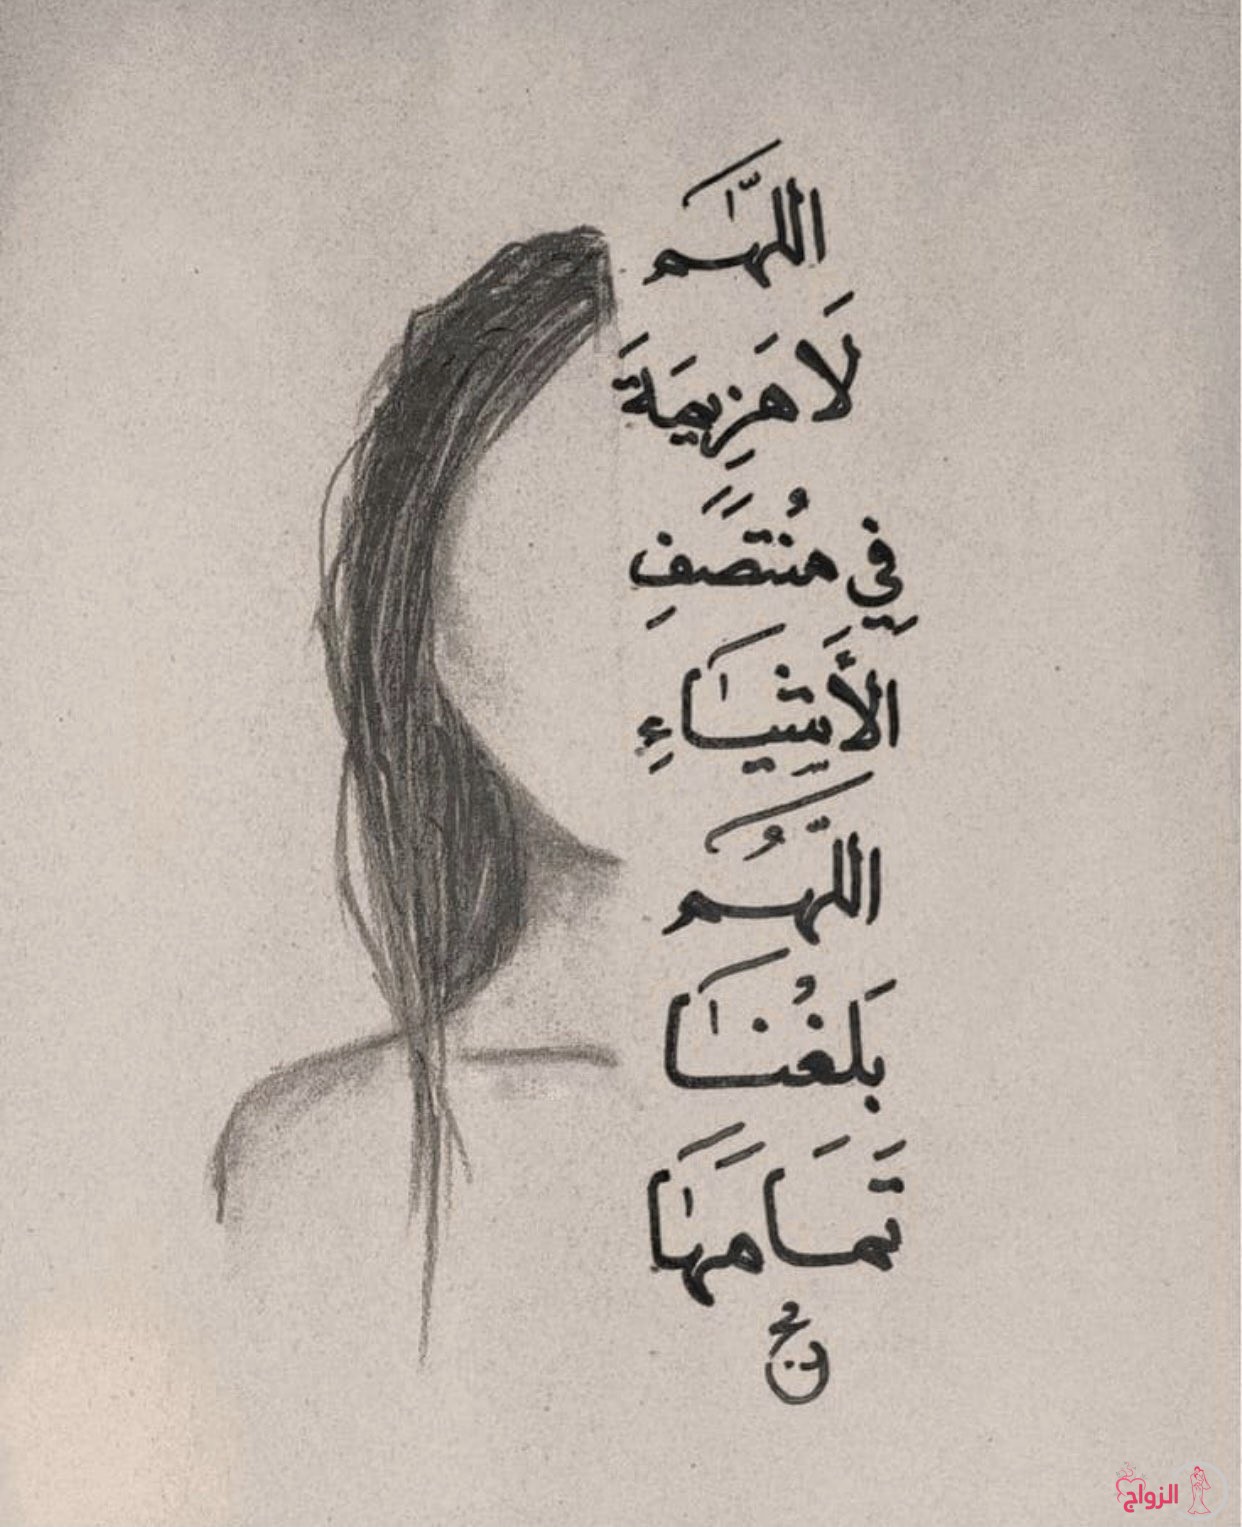 اللهم
لَا هَزِيمَةَ
فِي مُنْتَصَفِ
الأَشْيَاءِ
اللهُم
بَلغْنَا
تَمَامَهَا
الزواج